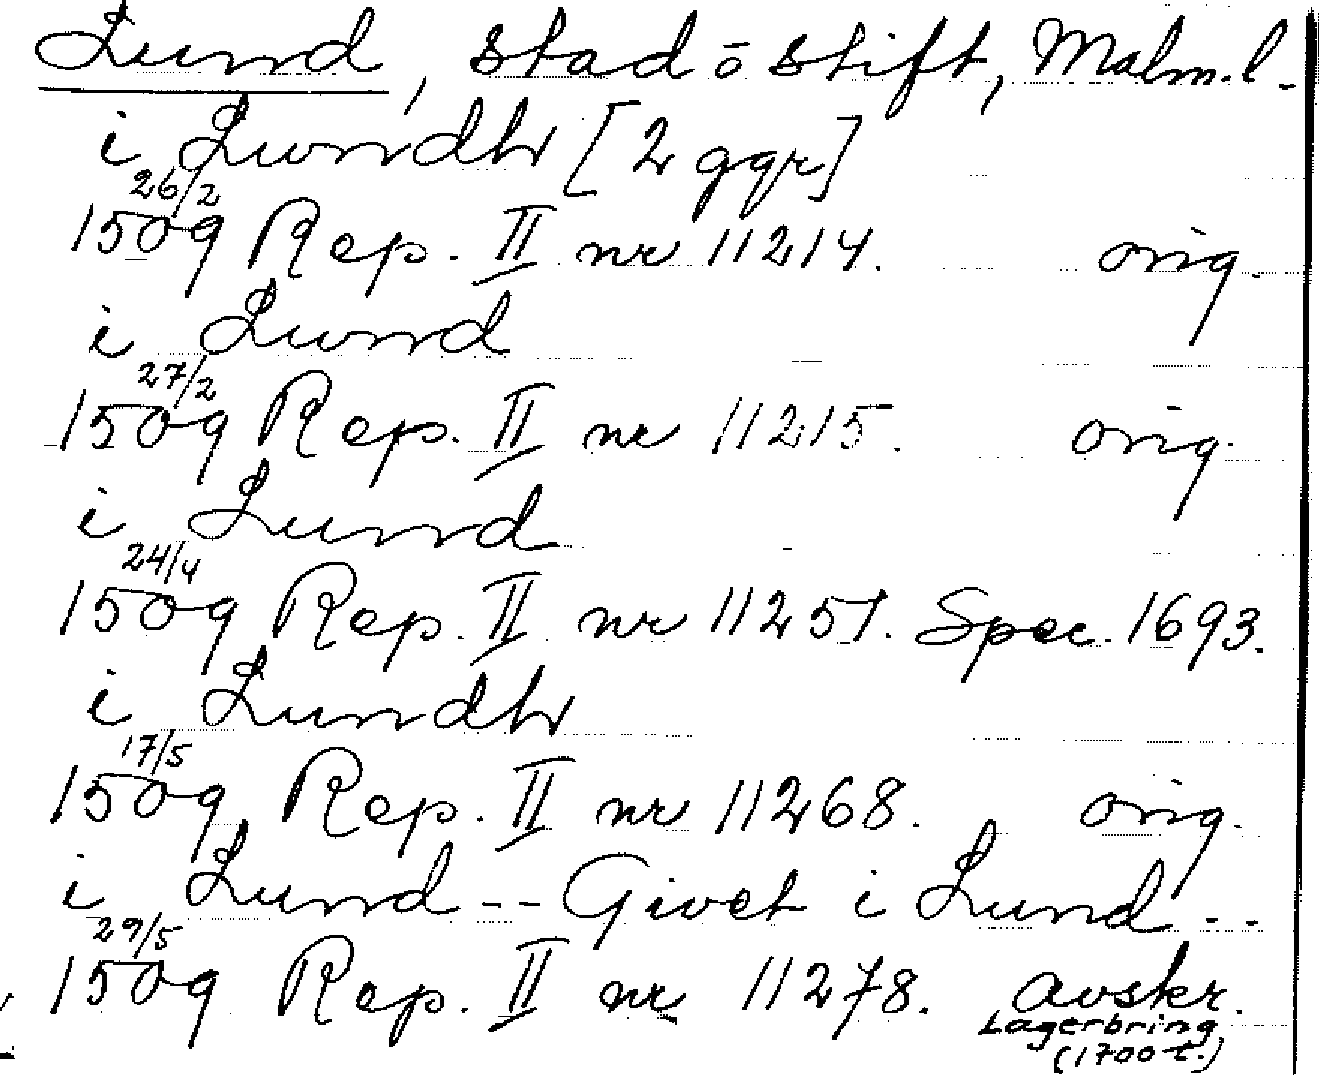 Lund, stad ō stift, Malm.l.
i Lundh [2 ggr]
26/2
1509 Rep. II nr 11214. orig.
i Lund
27/2
1509 Rep. II nr 11215. orig.
i Lund
24/4
1509 Rep. II nr 11251. Spec. 1693.
i Lundh
17/5
1509 Rep. II nr 11268. orig.
i Lund -- Givet i Lund --
29/5
1509 Rep. II nr 11278. avskr.
Lagerbring
(1700 t.)